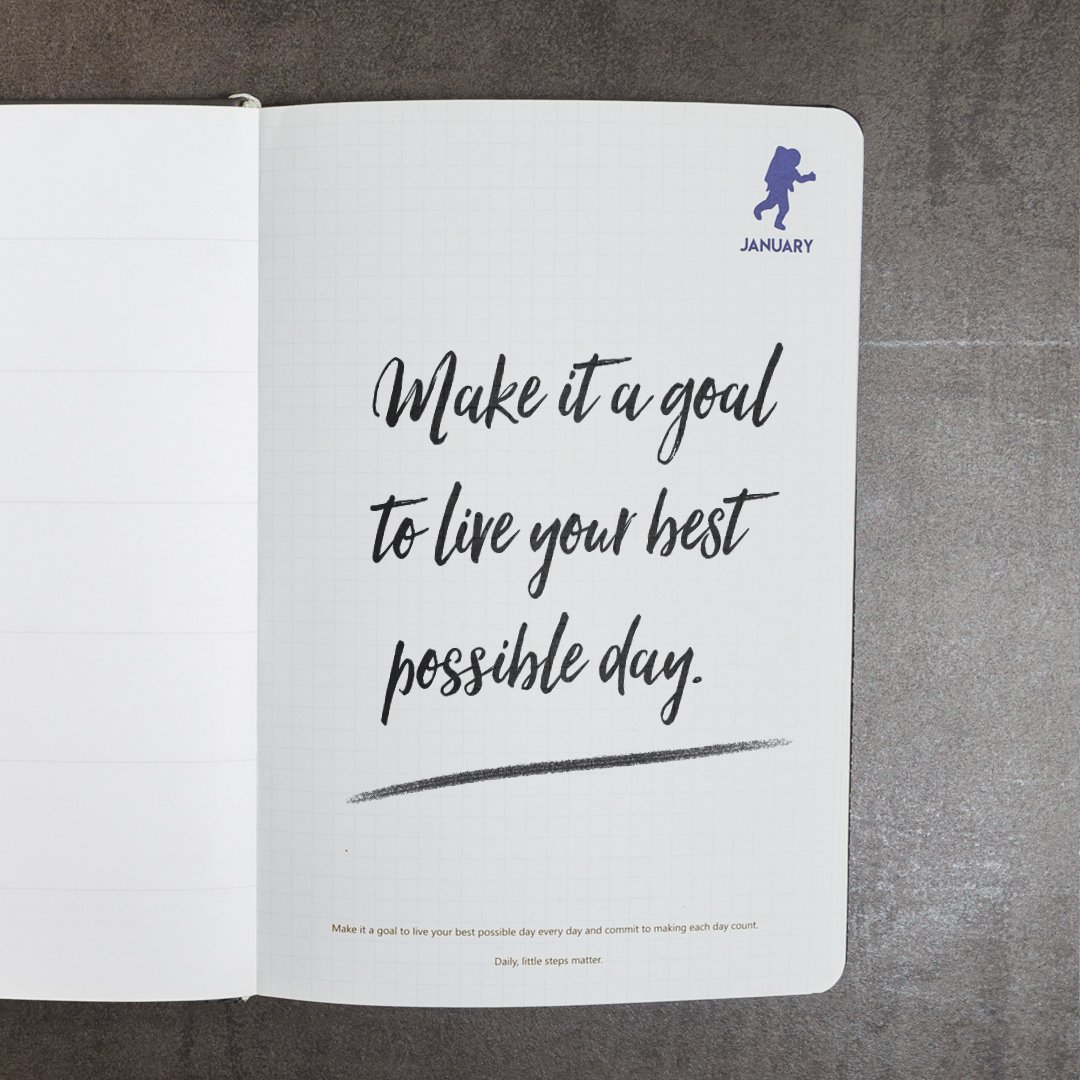 JANUARY
Make it a goal
to live your best
possible day.
Make it a goal to live your best possible day every day and commit to making each day count.
Daily, little steps matter.